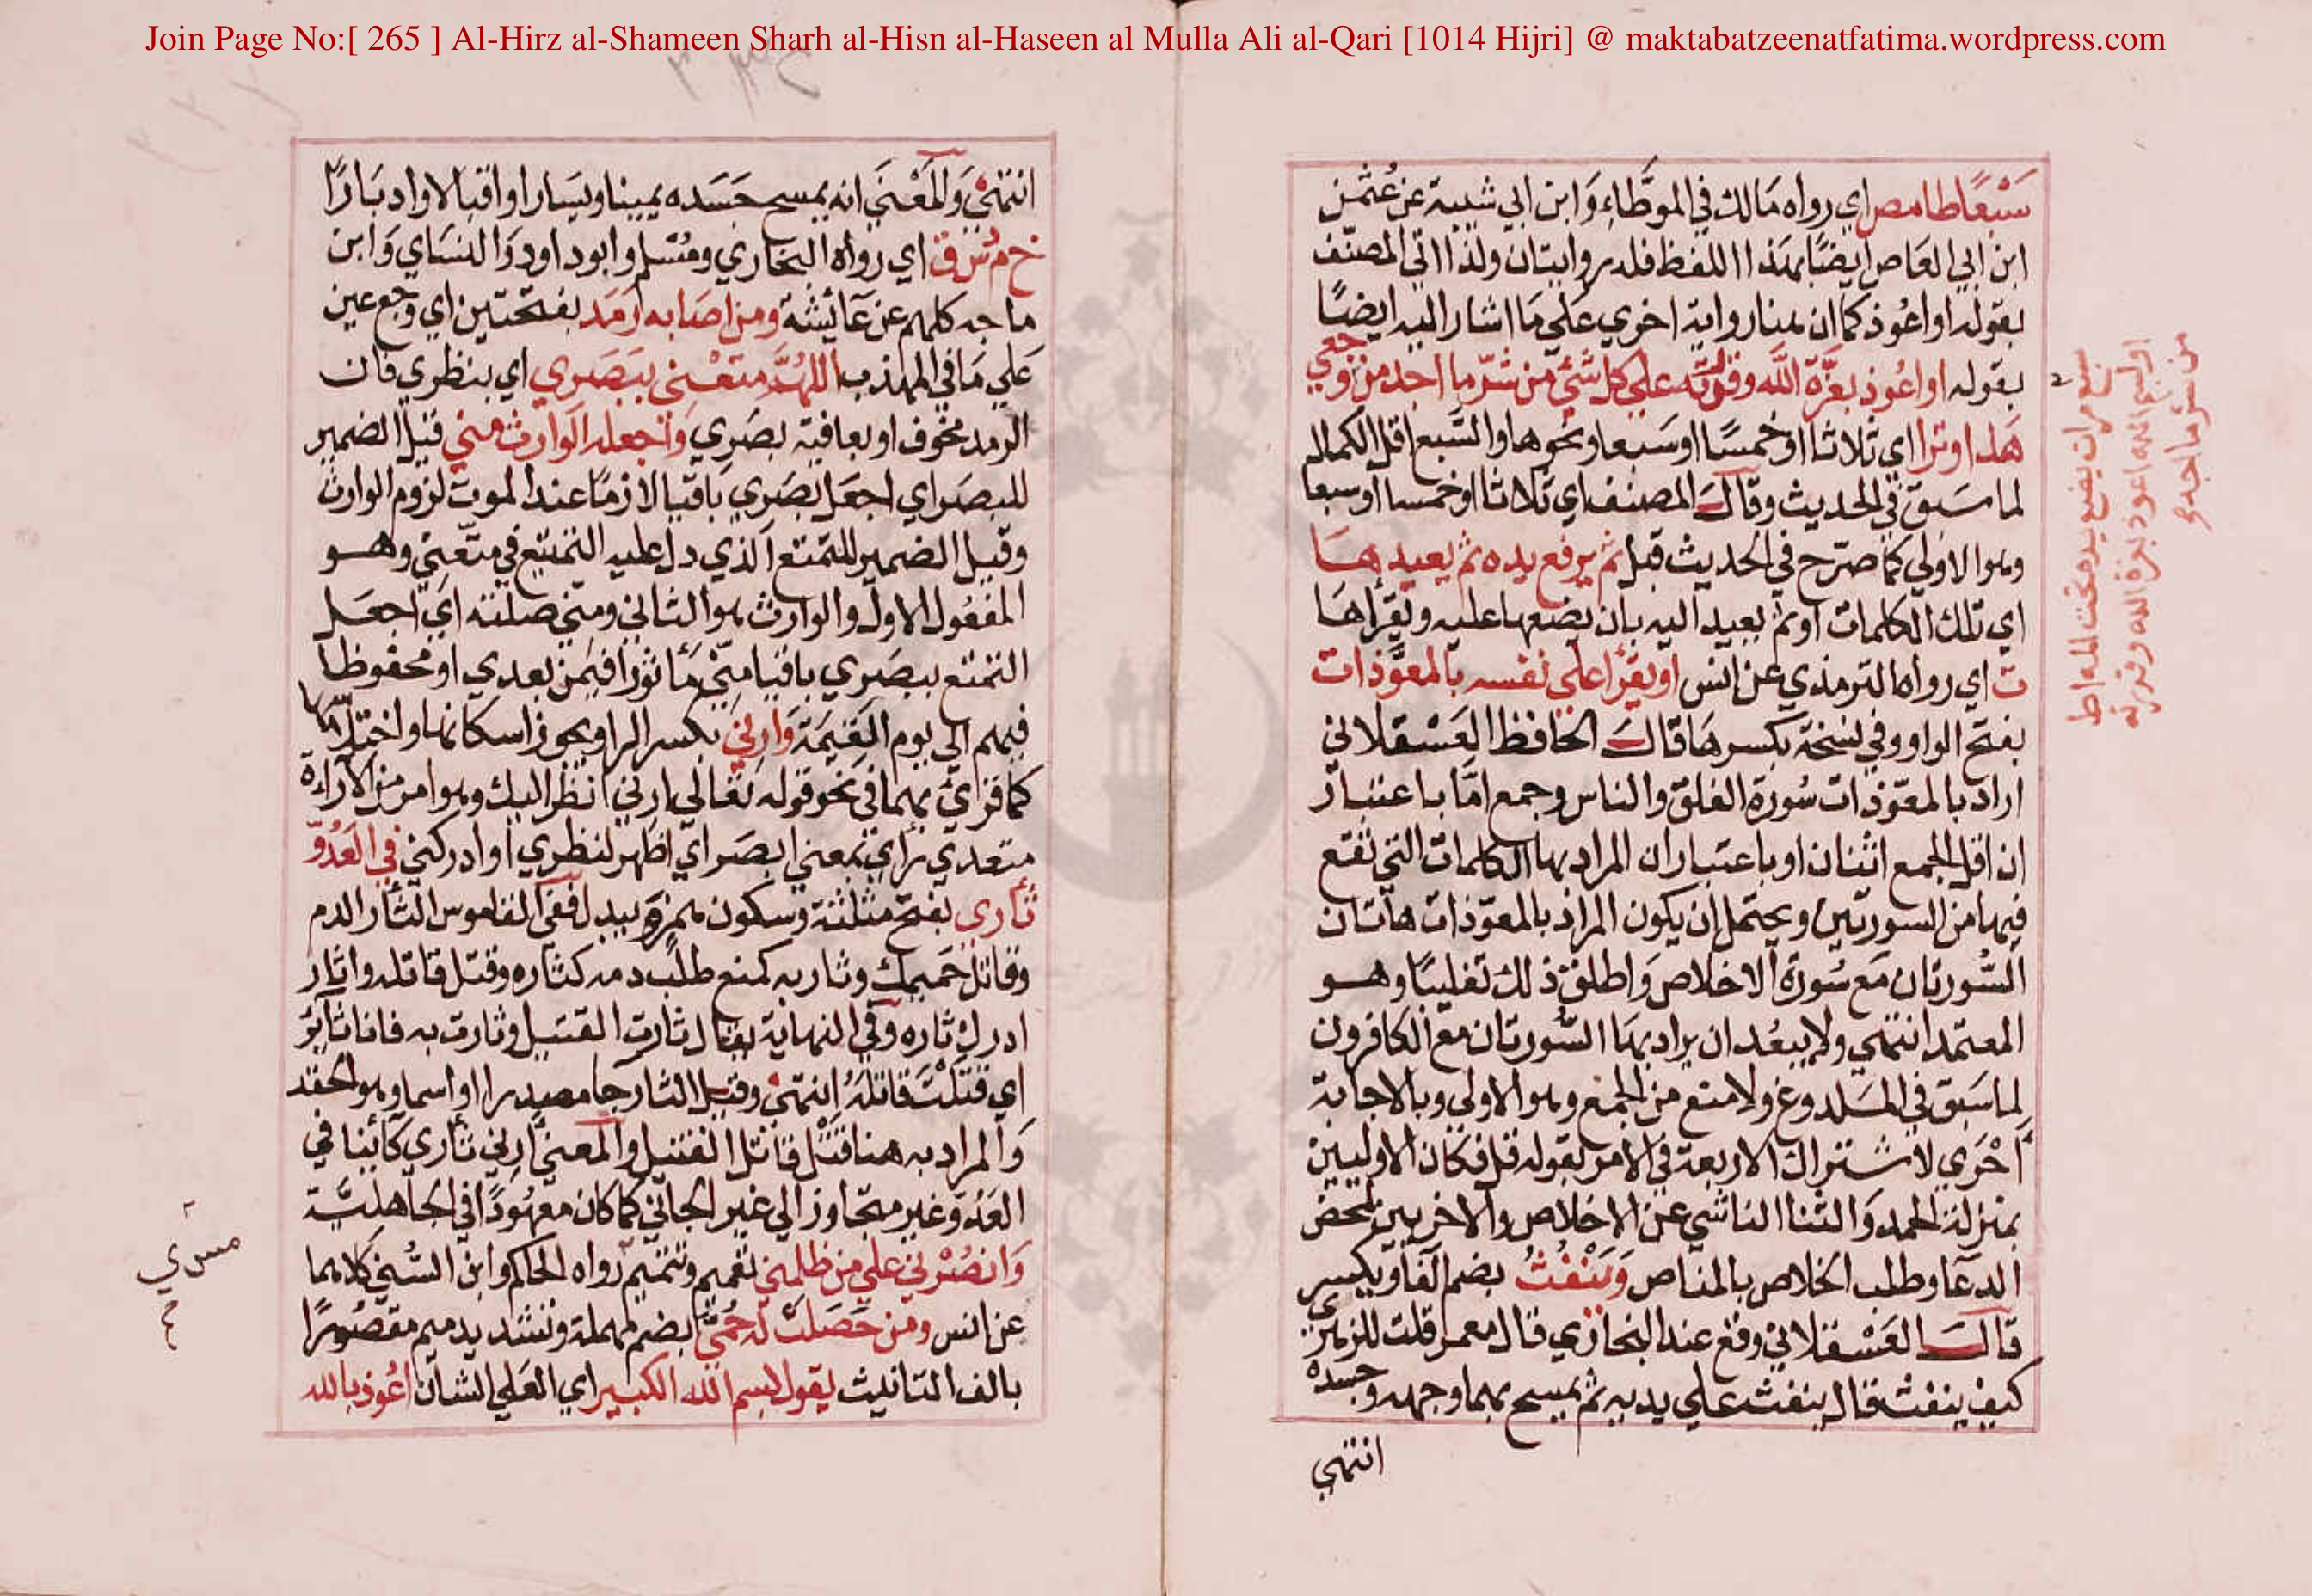 Join Page No:[ 265 ] Al-Hirz al-Shameen Sharh al-Hisn al-Haseen al Mulla Ali al-Qari [1014 Hijri] @ maktabatzeenatfatima.wordpress.com
سَبْعًا طا مص اي رواه مَالك في الموطَّاء وَابن ابي شيبة عن عُثمن
ابن ابي العَاص ايضًا بهَذا اللفظ فله روايتان ولذا اتي المصنّف
بقوله او اعُوذ كما ان هنا رواية اخري عَلي مَا اشار اليه ايضًا
بقوله او اعُوذ بعزّة الله وقدرته علي كل شئ من شرّ ما اجد من وجعي
هَذا وترا اي ثلاثا او خمسًا او سَبعا ونحوها والسَّبع اقل الكمال
لما سَبق في الحديث وقالَ المصنف اي ثلاثا او خمسا او سبعا
وهو الاولي كما صرّح في الحديث قبل ثم يرفع يده ثم يعيدهَا
اي تلك الكلمات او ثم يعيد اليه بان يضعها عليه ويقراهَا
ت اي رواه الترمذي عن انس او يقرا علي نفسه بالمعوّذات
بفتح الواو وفي نسخة بكسرهَا قالَ الحافظ العَسْقلاني
اراد بالمعوّذات سُورة الفلق والناس وجمع امّا باعتبار
ان اقل الجمع اثنان او باعتبار ان المراد بها الكلمات التي تقع
فيها من السورتين ويحتمل ان يكون المراد بالمعوّذات هاتان
السُّورتان مَع سُورة الاخلاص وَاطلق ذلك تغليبًا وهو
المعتمد انتهي ولا يبعُد ان يراد بهَا السُّورتان مع الكافرون
لما سَبق في المَلدوغ ولا منع من الجمع وهو الاولي وبالاجابة
اَحْري لاشتراك الاربعة في الامر بقوله قل فكان الاوليين
بمنزلة الحمد وَالثنا الناشي عن الاخلاص والاخريين لمحض
الدعَا وطلب الخلاص بالمناص وَيَنْفُثُ بضم الفا ويكسر
قالَ العَسْقلاني وقع عند البخاري قال معمر قلت للزهري
كيف ينفث قال ينفث علي يديه ثم يمسح بهما وجهه وجسده
انتهي
سبع مرات يضع يده تحت المه اط
او بسم الله اعوذ بعزة الله وقدرته
من شر ما اجد
انتهيْ وَالمَعْنَي انه يمسح جَسَده يمينا ويَسَارا واقبالا وادبَارًا
خ م د س ق اي رواه البخاري ومُسْلم وابو داود وَالنسَاي وَابن
ماجه كلهم عن عَائشة ومن اصَابه رَمَد بفتحتين اي وجع عين
عَلي مَا في المهذب اللهُمَّ متعْني ببَصَري اي بنظري فان
الرمد مخوف او بعافية بصَري وَاجعله الوارث مني قيل الضمير
للبصَر اي اجعَل بصَري بَاقيا لازمًا عند الموت لزوم الوارث
وقيل الضمير للتمتع الذي دل عليه التمتيع في متّعني وهو
المفعُول الاول والوارث هو الثاني ومنّي صلته اي اجعَل
التمتع ببصَري باقيا منّي مَأثورًا فيمن بعدي او محفوظا
فيهم الي يوم القيٰمَة وَارِني بكسر الرا ويجوز اسكانها واختلاسها
كما قرائ بهما في نحو قوله تعَالي ارني انظر اليك وهو امر من الاراءة
متعدي رأي بمعني ابصَر اي اظهر لنظري او ادركني في العَدُوّ
ثأري بفتح مثلثة وسكون همزة ويبدل ففي القاموس الثأر الدم
وقاتل حَميمك وثار به كمنع طلب دمه كثاره وقتل قاتله واثار
ادرك ثاره وفي النهاية يقال ثارت القتيل وثارت به فانا ثائر
اي قتلْتُ قاتلهُ انتهيْ وقيل الثار جا مصدرا او اسما وهو الحقد
وَالمراد به هنا قتْل قاتل القتيل وَالمَعني اَرِني ثأري كائنا في
العَدُوّ غير متجاوز الي غير الجاني كما كان معهُودًا في الجاهليَّة
وَانصُرْني علي من ظلمني تعميم وتتميم رواه الحاكم وابن السُّني كلاهما
عن انس ومن حَصَلتْ له حُمَّي بضم مهملة وتشديد ميم مقصُورًا
بالف التانيث يقول بسم الله الكبير اي العَلي الشان اعُوذ بالله